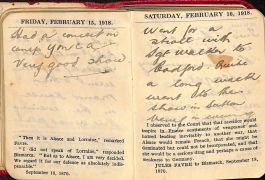 FRIDAY, FEBRUARY 15, 1918.
Had a concert in
camp. Quite a
very good show
"Then it is Alsace and Lorraine," remarked
Favre.
"I did not speak of Lorraine," responded
Bismarck. "But as to Alsace, I am very decided.
We regard it for our defense as absolutely indis-
pensable."
September 18, 1870.
SATURDAY, FEBRUARY 16, 1918.
Went for a
stroll with
Walker to
Radford. Quite
a long walk
went into the
show in Sutton
I observed to the Count that that menaced would
inspire in France sentiments of vengeance and
hatred leading inevitably to another war, that
Alsace would remain French, that she might be
dominated but could not be incorporated, and that
she would be a serious drag and perhaps a cause of
weakness to Germany.
JULES FAVRE to Bismarck, September 19,
1870.